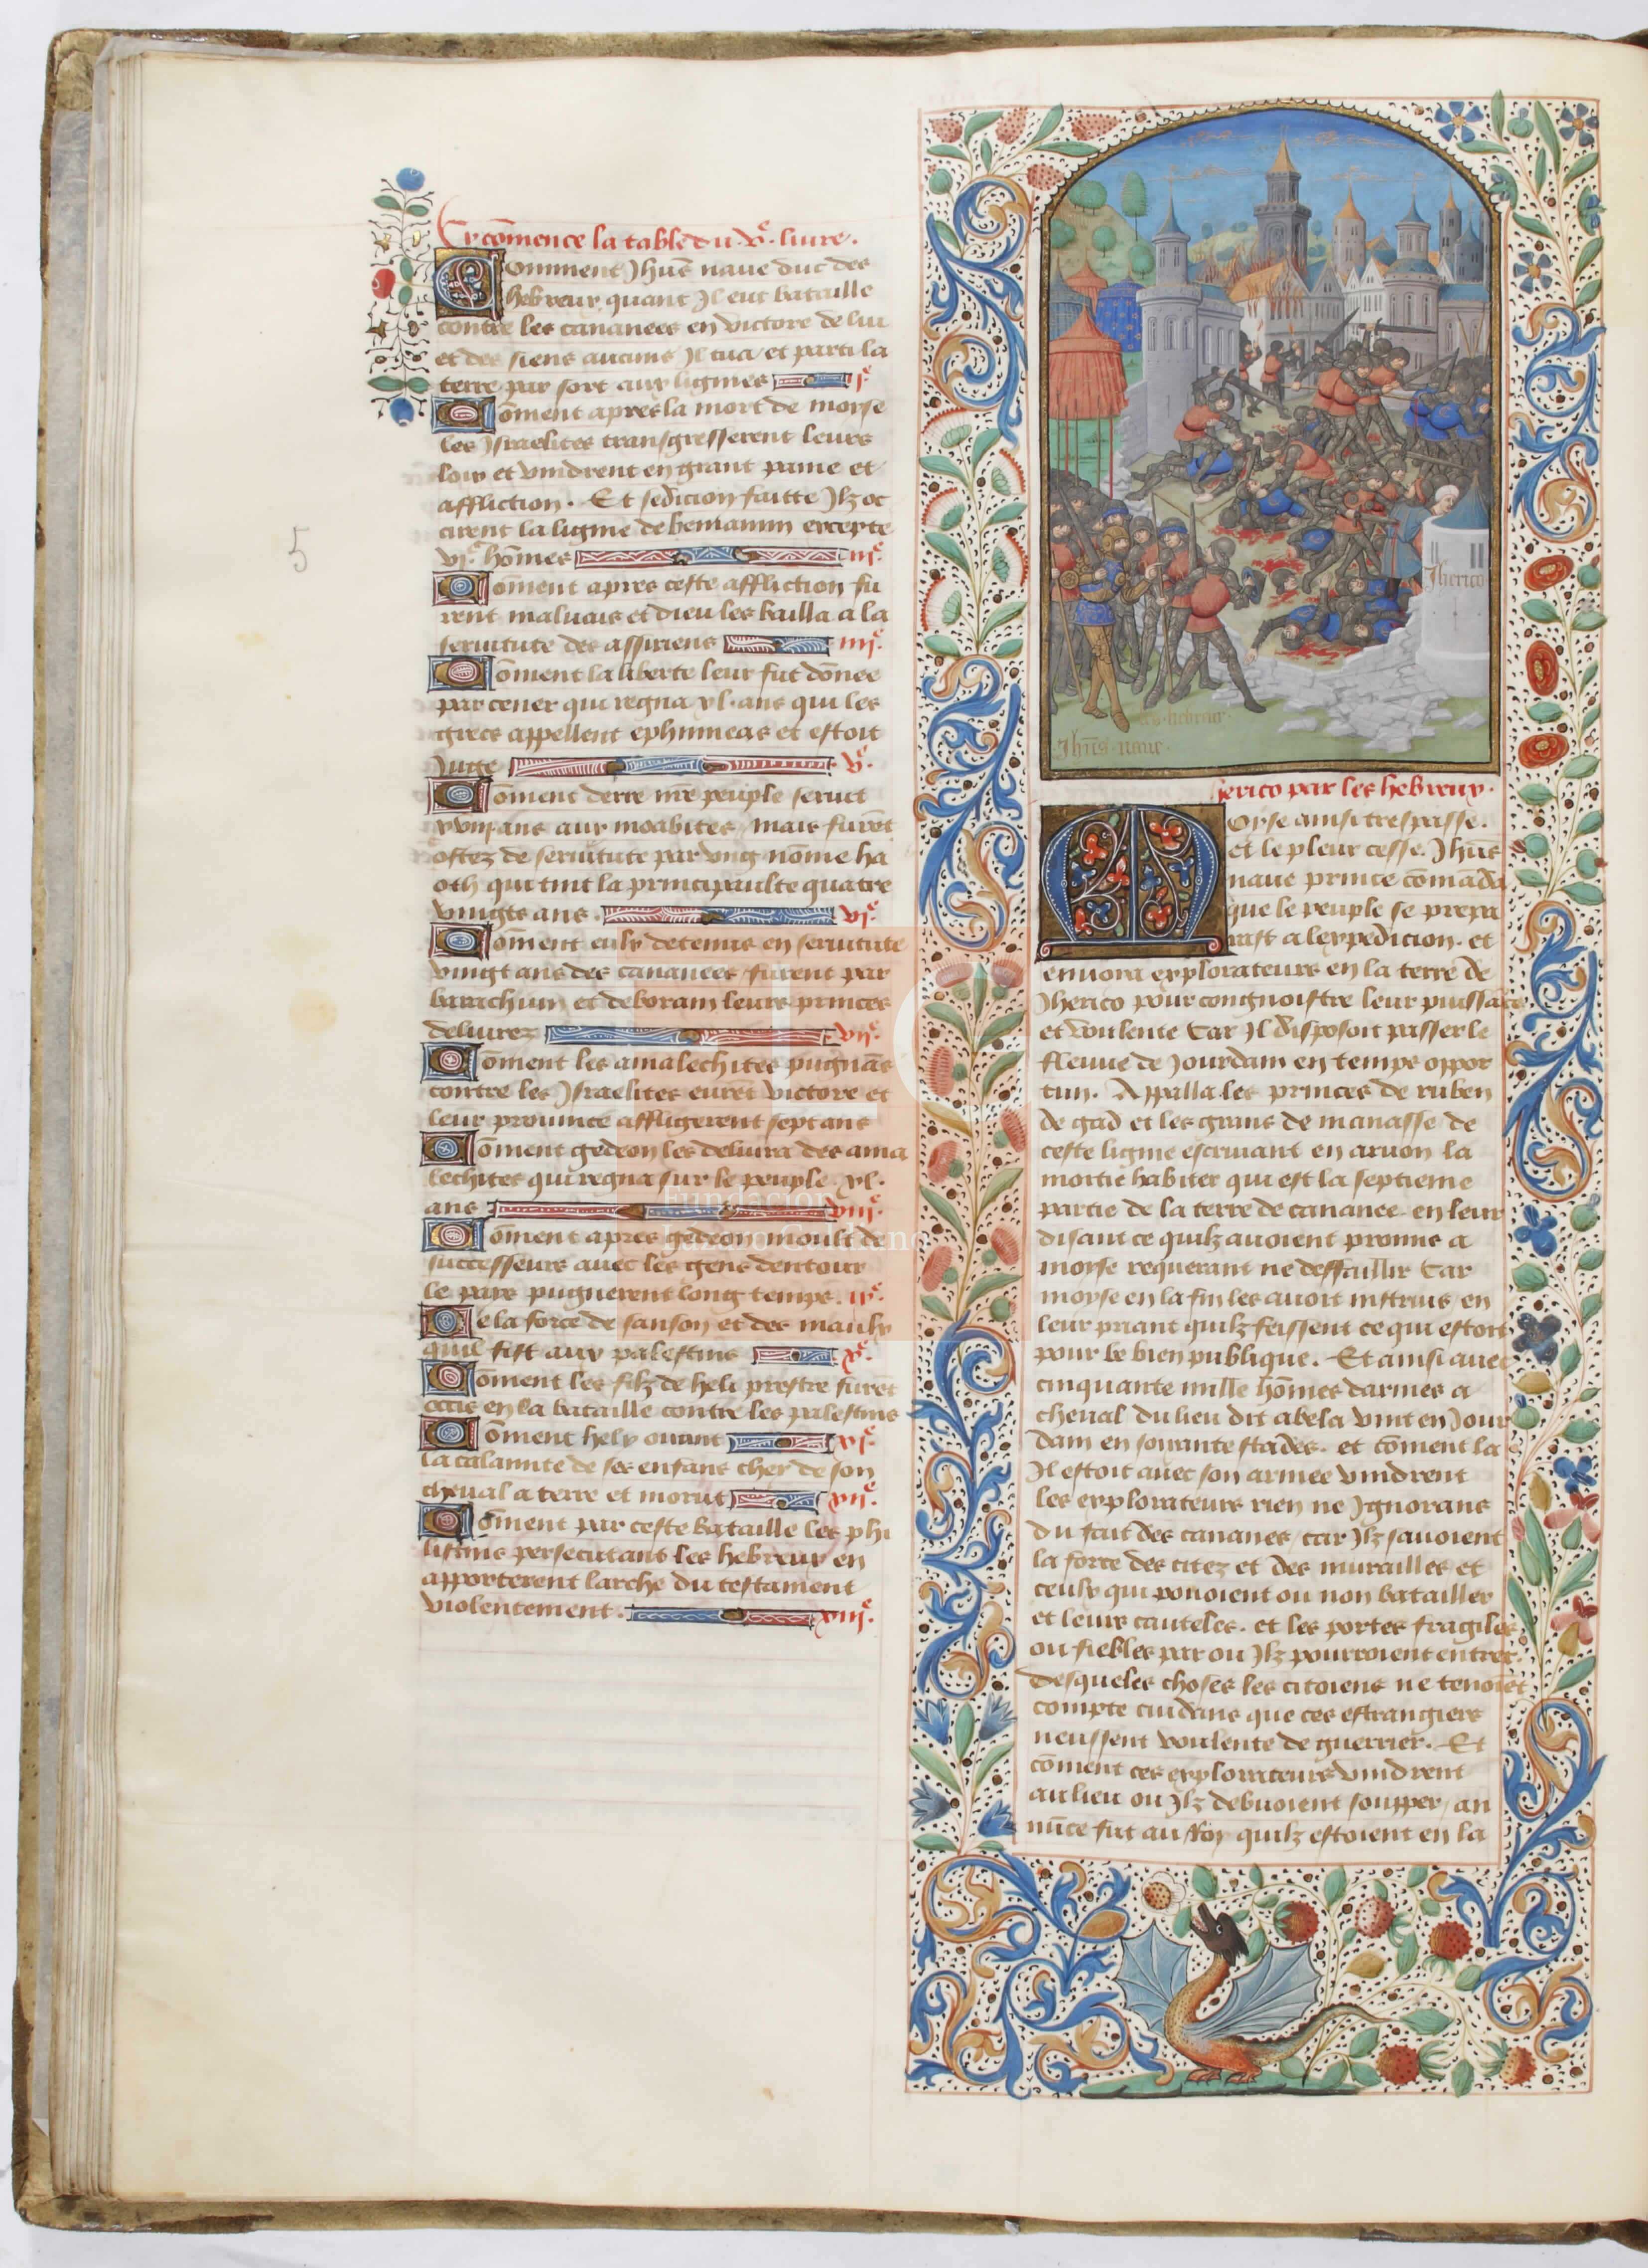 Cy cōmence la table du .vᵉ. liure.
Comment Jhūs naue duc des
hebreux quant Jl eut bataille
contre les cananees eu victore de lui
et des siens aucuns Jl tua et parti la
terre par sort aux lignies jᵉ
Cōment apres la mort de moyse
les Jsraelites transgresserent leurs
loix et vindrent en grant paine et
affliction. Et sedicion faitte Jlz oc
cirent la lignie de beniamin excepte
vjᶜ. hōmes iijᵉ.
Cōment apres ceste affliction fu
rent maluais et dieu les bailla a la
seruitute des assiriens iiijᵉ.
Cōment la liberte leur fut dōnee
par cener qui regna xl. ans qui les
grecs appellent ephinneas et estoit
Juge vᵉ.
Cōment derre nr̄e peuple seruit
xviij ans aux moabites mais furēt
ostez de seruitute par vng nōme ha
oth qui tint la principaulte quatre
vingts ans. vjᵉ.
Cōment eulx detenus en seruitute
vingt ans des cananees furent par
barachum et deboram leurs princes
deliurez vijᵉ.
Cōment les amalechites pugnās
contre les Jsraelites eurēt victore et
leur prouince affligerent sept ans
Cōment gedeon les deliura des ama
lechites qui regna sur le peuple .xl.
ans viijᵉ.
Cōment apres gedeon moult de
successeurs auec les gens dentour
le pais pugnerent long temps. ixᵉ.
De la force de sanson et des maulx
quil fist aux palestins xᵉ.
Cōment les filz de heli prestre furēt
occis en la bataille contre les palestins
Cōment hely ouant xjᵉ.
la calamite de ses enfans chey de son
cheual a terre et morut xijᵉ.
Cōment par ceste bataille les phi
listins persecutans les hebreux en
apporterent larche du testament
violentement. xiijᵉ.
5
Jherico
les hebreux.
Jhūs. naue.
herico par les hebreux.
Moyse ainsi trespasse.
et le pleur cesse. Jhūs
naue prince cōmāda
que le peuple se prepa
rast a lexpedicion. et
enuoia explorateurs en la terre de
Jherico pour congnoistre leur puissāce
et voulente Car Jl disposoit passer le
fleuue de Jourdain en temps oppor
tun. Appalla les princes de ruben
de gad et les grans de manasse de
ceste lignie escriuant en aruon la
mortie habiter qui est la septieme
partie de la terre de cananee en leur
disant ce quilz auoient promis a
moyse requerant ne deffaillir Car
moyse en la fin les auoit instruis en
leur priant quilz feissent ce qui estoit
pour le bien publique. Et ainsi auec
cinquante mille hōmes darmes a
cheual du lieu dit abela vint en Jour
dain en soixante stades. et cōment la
Jl estoit auec son armee vindrent
les explorateurs rien ne Jgnorans
du fait des cananes car Jlz sauoient
la force des citez et des murailles et
ceulx qui pouoient ou non batailler
et leurs cauteles. et les portes fragiles
ou fiebles par ou Jlz pourroient entrer.
desqueles choses les citoiens ne tenoiēt
compte cuidans que ces estrangiers
neussent voulente de guerrier. Et
cōment ces explorateurs vindrent
au lieu ou Jlz debuoient soupper an
nūce fut au roy quilz estoient en la
Fundación
Lázaro Galdiano